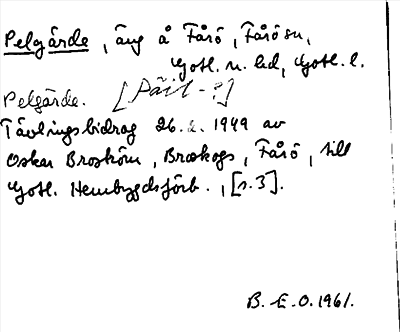 Pelgärde, äng å Fårö, Fårö sn,
Gotl. n. hd, Gotl. l.
Pelgärde. [Päil-?]
Tävlingsbidrag 26.2.1949 av
Oskar Broström, Broskogs, Fårö, till
Gotl. Hembygdsförb., [s.3].
B. E. O. 1961.